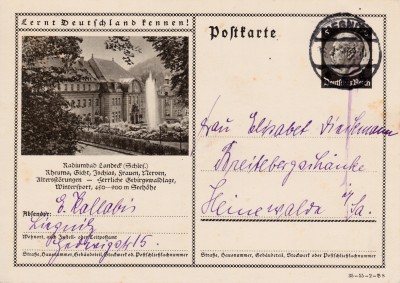 Lernt Deutschland kennen!
Radiumbad Landeck (Schles.)
Rheuma, Gicht, Ischias, Frauen, Nerven,
Altersstörungen — Herrliche Gebirgswaldlage,
Wintersport, 450—900 m Seehöhe
Absender:
E. Kallabis
Liegnitz
Wohnort, auch Zustell- oder Leitpostamt
Hedwigstr 15.
Straße, Hausnummer, Gebäudeteil, Stockwerk od. Postschließfachnummer
Postkarte
LIEGNITZ
Deutsches Reich
Frau Elisabet
Breitebergschänke
Hainewalde i/Sa.
Straße, Hausnummer, Gebäudeteil, Stockwerk oder Postschließfachnummer